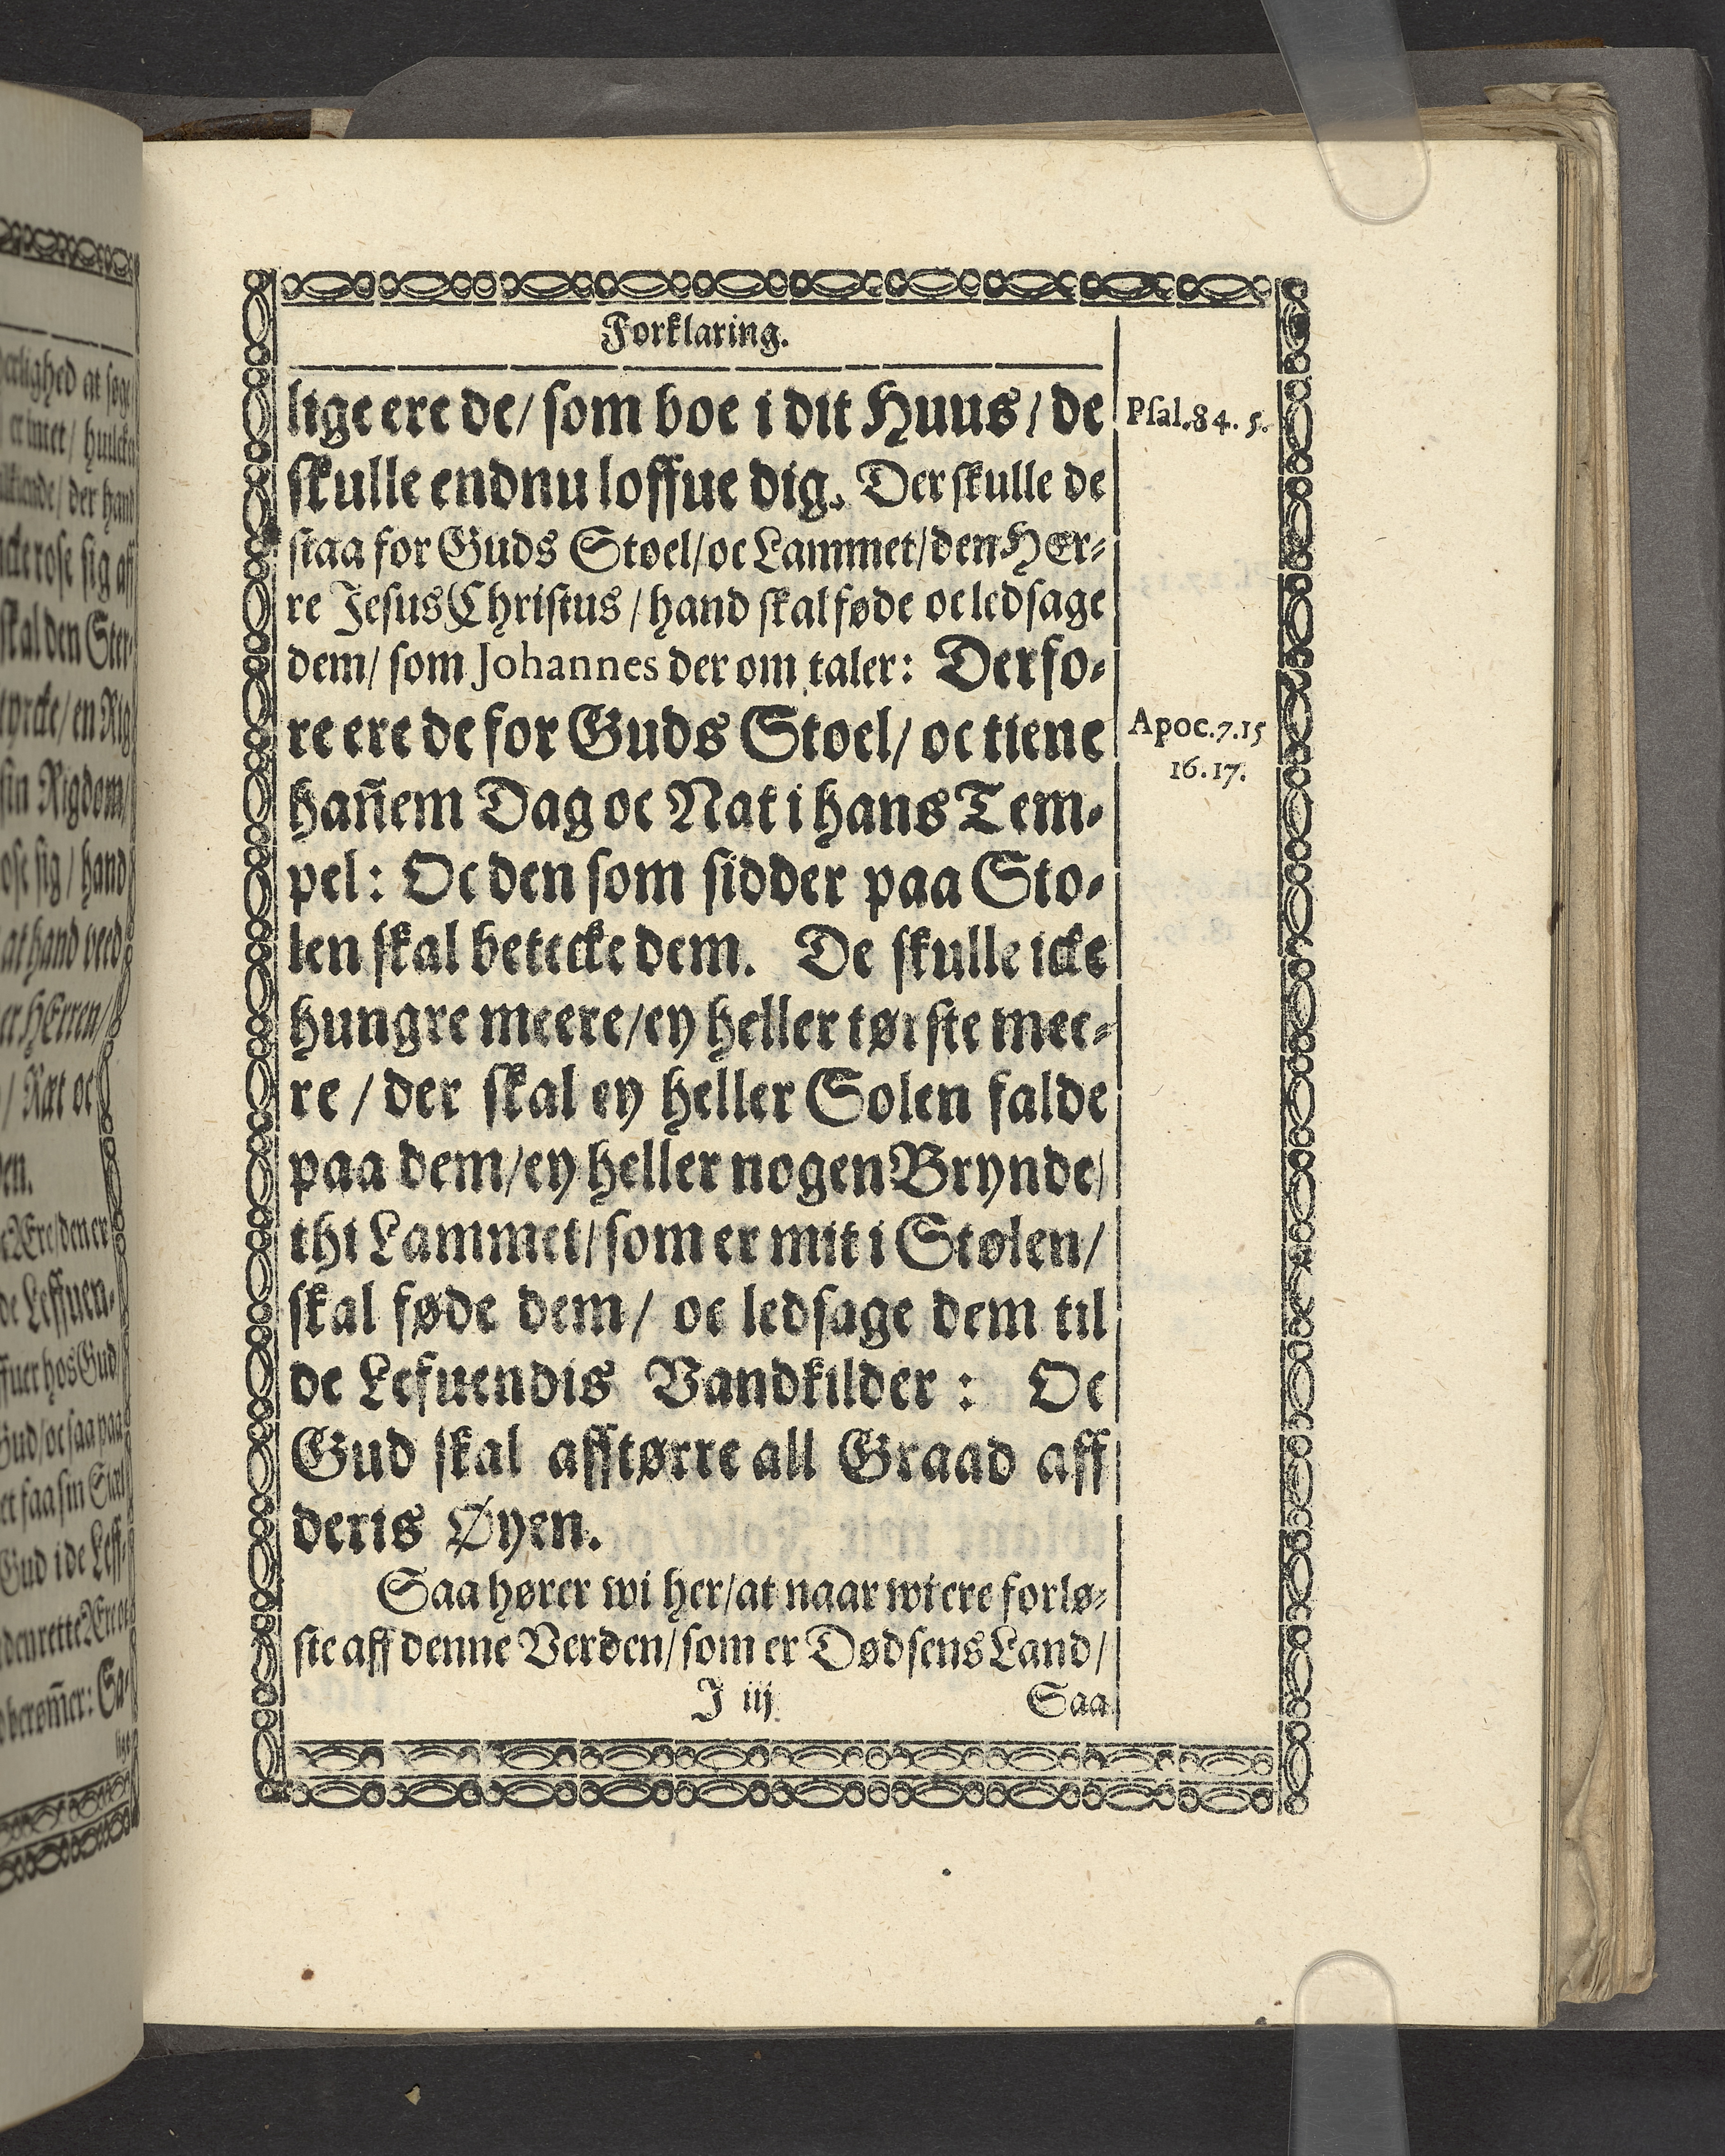 Forklaring.
lige ere de/ som boe i dit Huus/ de
Psal.84. 5.
skulle endnu loffue dig. Der skulle de
staa for Guds Stoel/ oc Lammet/ den HEr-
re Jesus Christus/ hand skal føde oc ledsage
dem/ som Johannes der om taler: Derfo-
re ere de for Guds Stoel/ oc tiene
Apoc.7.15
16.17.
hañem Dag oc Nat i hans Tem-
pel: Oc den som sidder paa Sto-
len skal betecke dem. De skulle icke
hungre meere/ ey heller tørste mee-
re/ der skal ey heller Solen falde
paa dem/ ey heller nogen Brynde/
thi Lammet/ som er mit i Stølen/
skal føde dem/ oc ledsage dem til
de Lefuendis Vandkilder: Oc
Gud skal afftørre all Graad aff
deris Øyen.
Saa hører wi her/ at naar wi ere forlø-
ste aff denne Verden/ som er Dødsens Land/
J iij
Saa